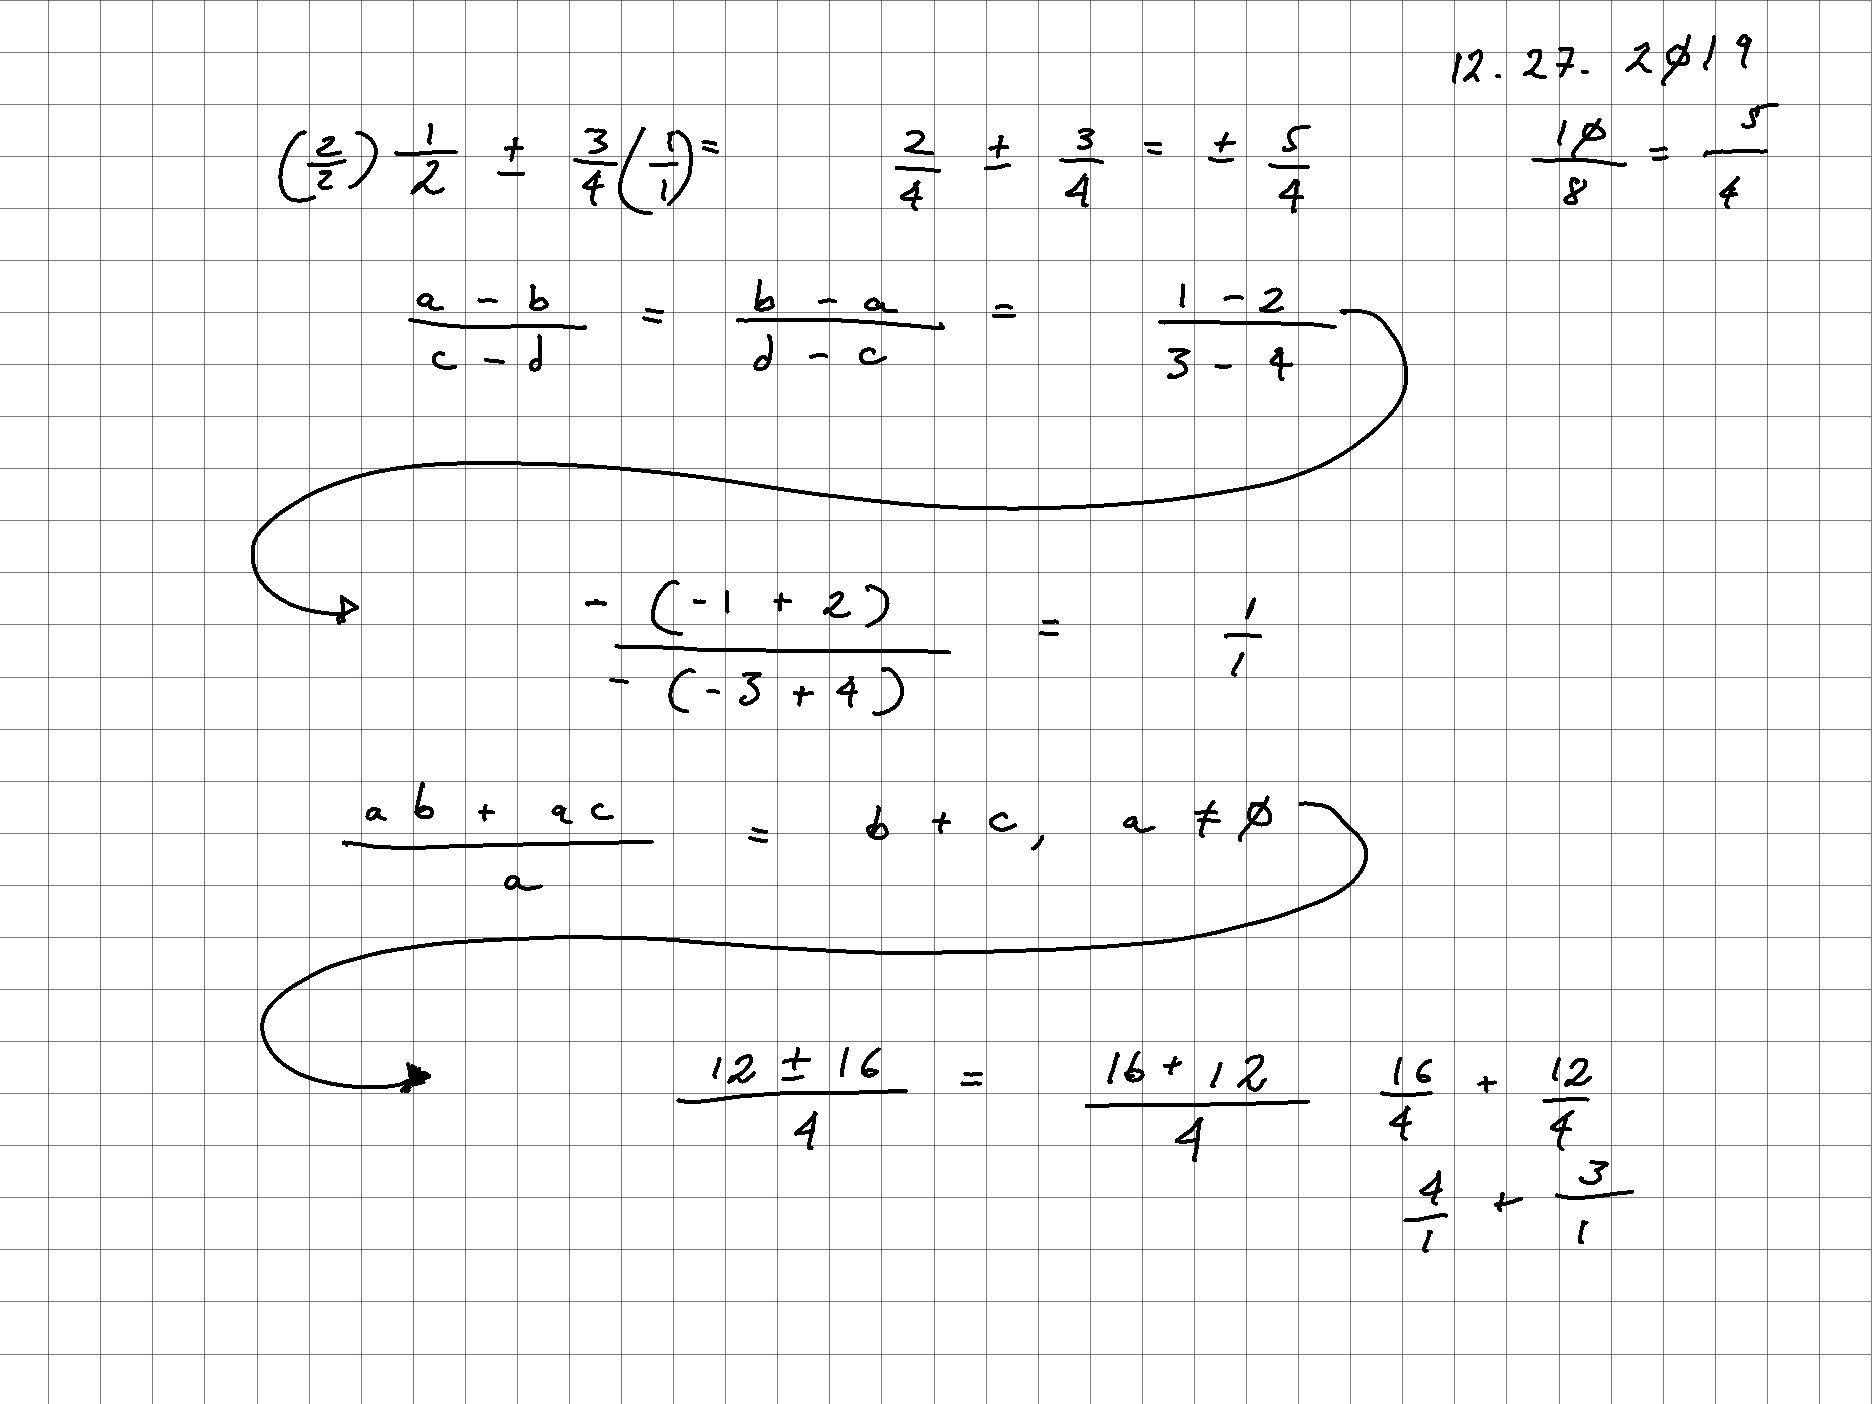 12. 27. 2∅19
(2/2) 1/2 ± 3/4 (1/1) = 2/4 ± 3/4 = ± 5/4 1∅/8 = 5/4
(a - b)/(c - d) = (b - a)/(d - c) = (1 - 2)/(3 - 4)
-(-1 + 2)/-(-3 + 4) = 1/1
(ab + ac)/a = b + c, a ≠ ∅
(12 ± 16)/4 = (16 + 12)/4 16/4 + 12/4
4/1 + 3/1